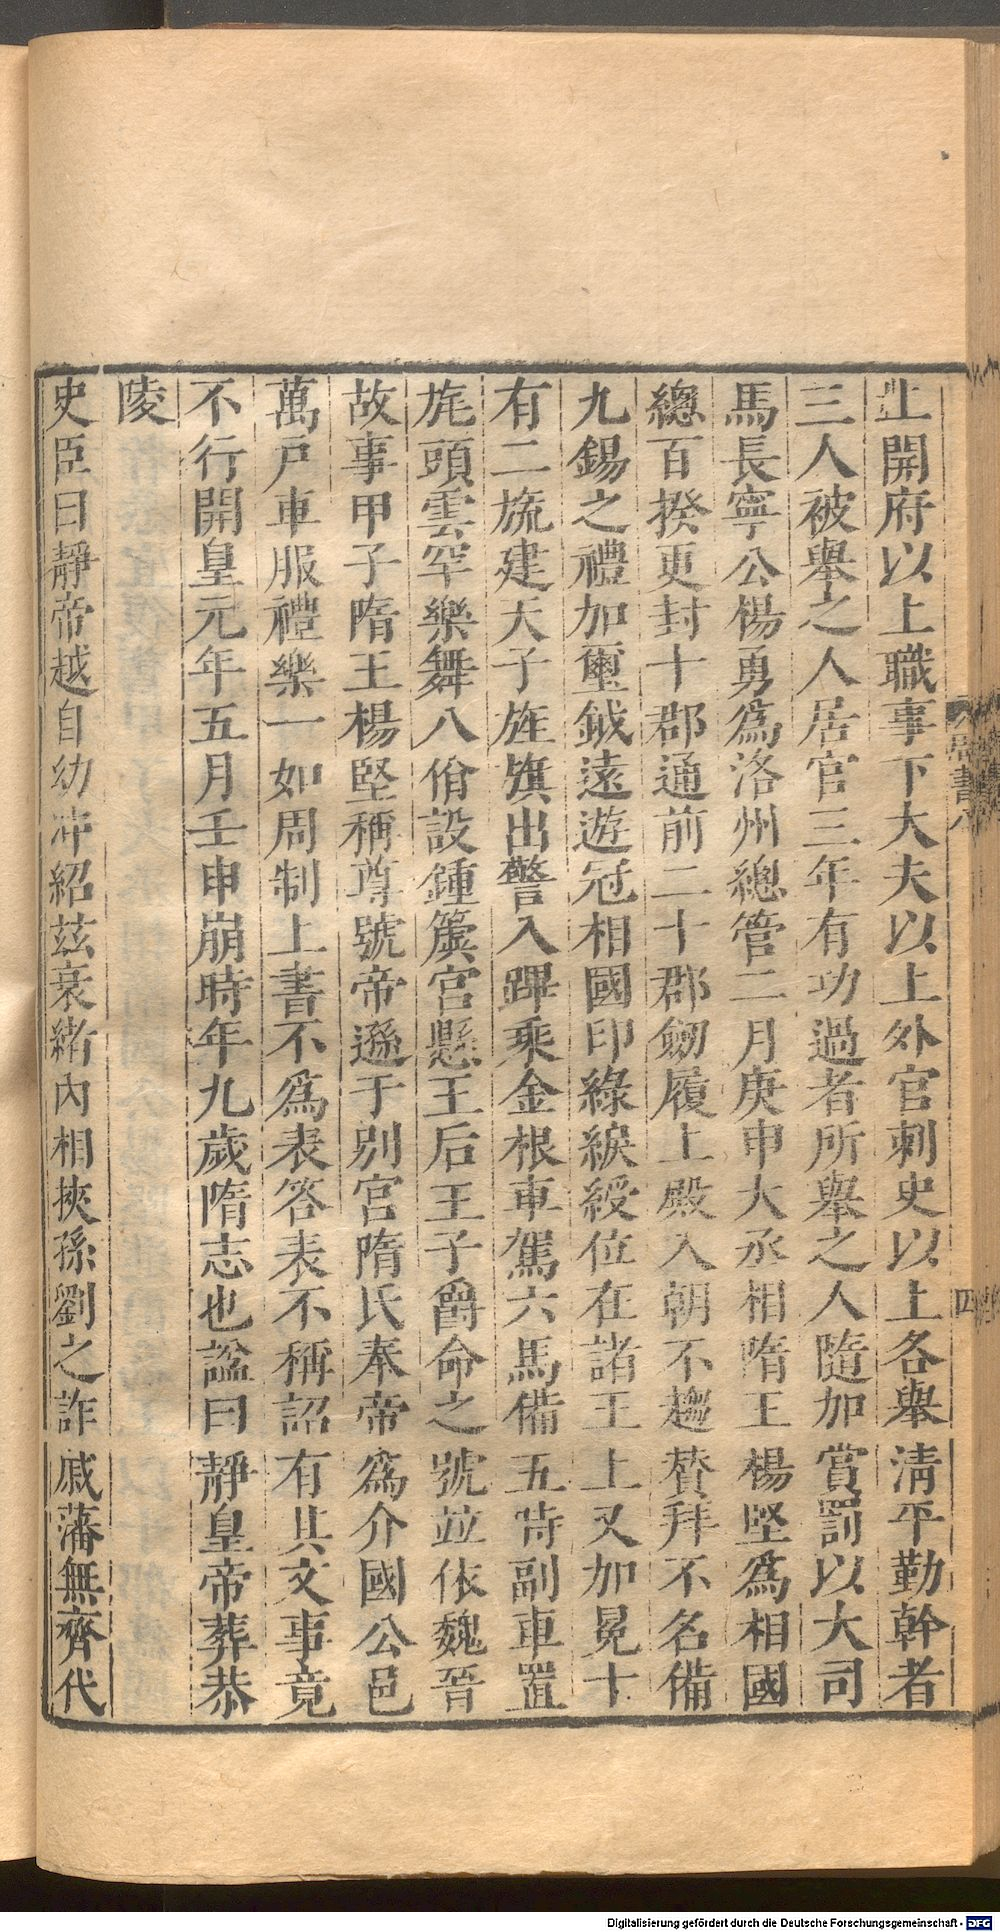 上開府以上職事下大夫以上外官刺史以上各舉清平勤幹者
三人被舉之人居官三年有功過者所舉之人隨加賞罰以大司
馬長寧公楊勇爲洛州總管二月庚申大丞相隋王楊堅爲相國
總百揆更封十郡通前二十郡劒履上殿入朝不趨賛拜不名備
九錫之禮加璽鉞遠遊冠相國印綠綟綬位在諸王上又加冕十
有二旒建天子旌旗出警入蹕乘金根車駕六馬備五時副車置
旄頭雲罕樂舞八佾設鍾簴宮懸王后王子爵命之號竝依魏晉
故事甲子隋王楊堅稱尊號帝遜于別宮隋氏奉帝爲介國公邑
萬戸車服禮樂一如周制上書不爲表答表不稱詔有其文事竟
不行開皇元年五月壬申崩時年九歲隋志也諡曰靜皇帝葬恭
陵
史臣曰靜帝越自幼冲紹茲衰緒內相挾孫劉之詐戚藩無齊代
周書八
四
Digitalisierung gefördert durch die Deutsche Forschungsgemeinschaft - DFG